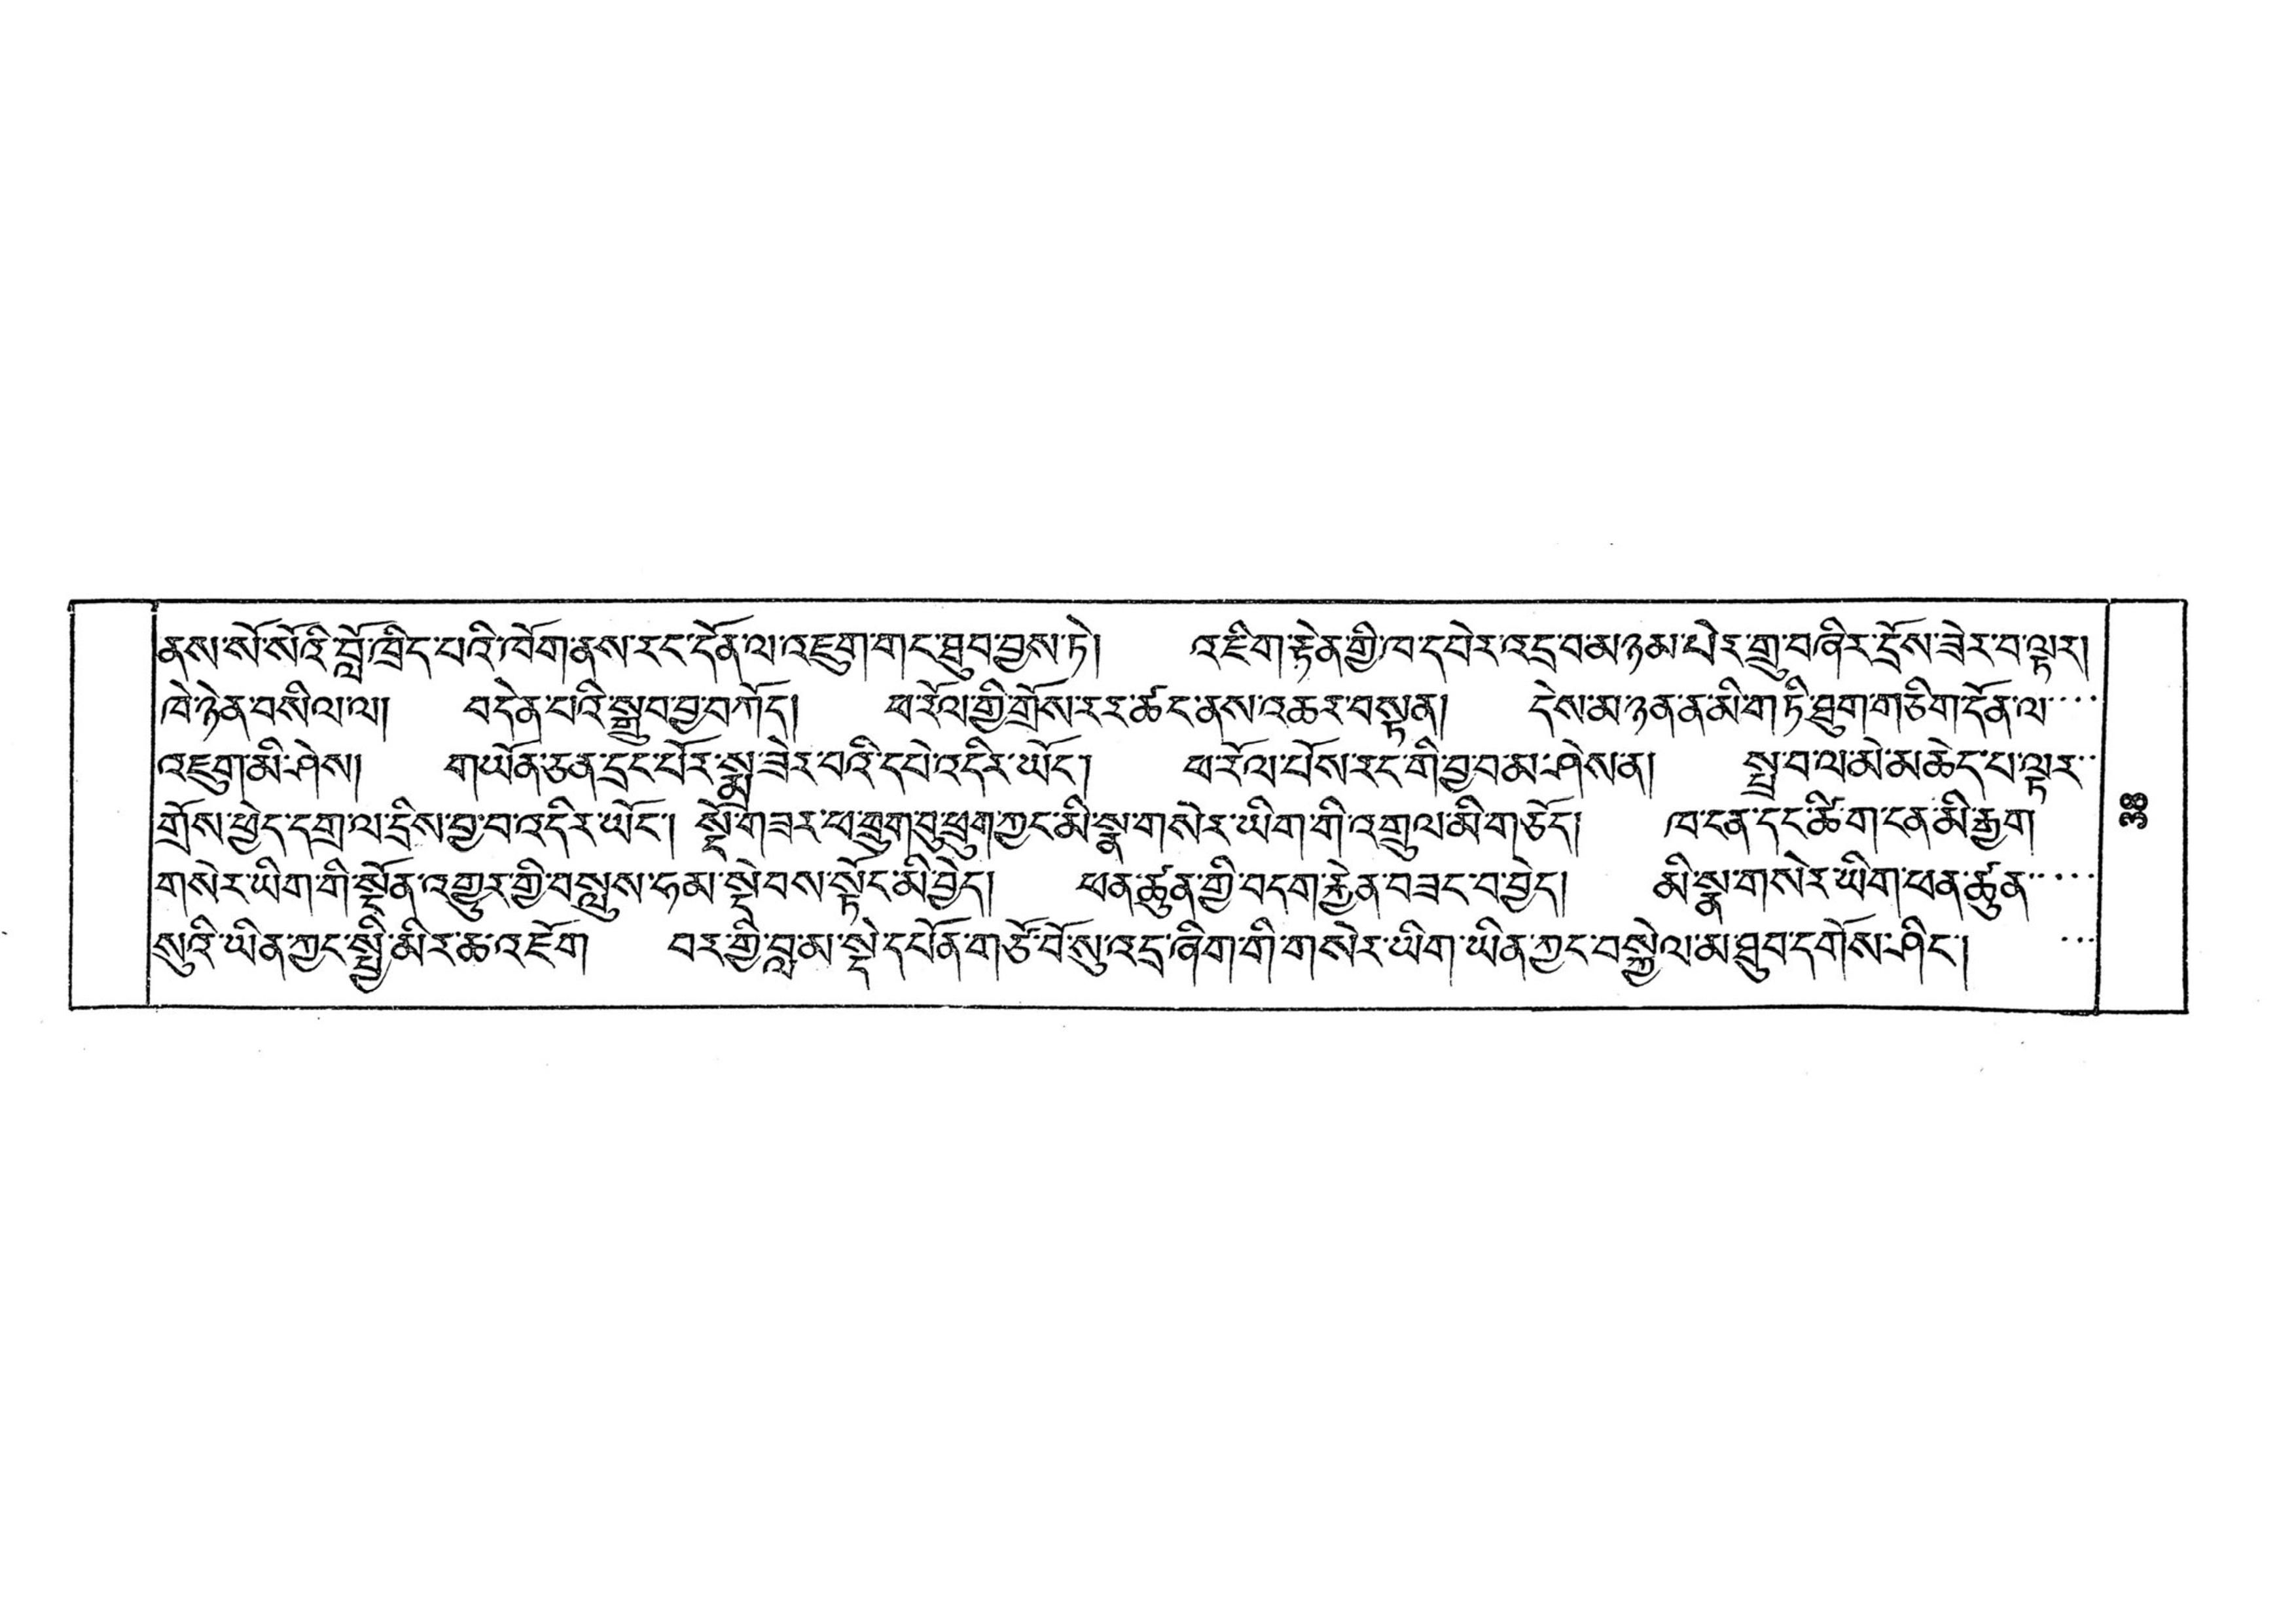 ནས་སོ་སོའི་བློ་ཁྲིད་པའི་ཁོག་ནས་རང་དོན་ལ་འཇུག་གང་ཐུབ་བྱས་ཏེ། འཇིག་རྟེན་གྱི་ཁ་དཔེར་འདྲ་བ་མ་ཉམ་པེར་གྲུ་བཞིར་དྲོས་ཟེར་བ་ལྟར།
ཁེ་ཉེན་བསིལ་ལ། བདེན་པའི་སྒྲུབ་བྱ་བཀོད། ཕ་རོལ་གྱི་གྲོས་རར་ཚང་ནས་འཆར་བསྟན། དེས་མ་ཉན་ན་མི་གཏི་ཐུག་གཅིག་དོན་ལ····
འཇུག་མི་ཤེས། གཡོན་ཅན་དྲང་པོར་སྨྲ་ཟེར་བའི་དཔེ་འདིར་ཡོང་། ཕ་རོལ་པོས་རང་གི་བྱ་བ་མ་ཤེས་ན། སྤྲ་བ་ལ་མེ་མ་ཆེད་པ་ལྟར··
གྲོས་ཕྱེད་དགྲ་ལ་དྲིས་བྱ་བ་འདིར་ཡོང་། སྡེ་གཟར་ཕ་ཕྲུག་བུ་ཕྲུག་ཀྱང་མི་སྣ་གསེར་ཡིག་གི་འགྲུལ་མི་གཅོད། ཁ་ངན་དང་ཚིག་ངན་མི་རྒྱག
གསེར་ཡིག་གི་སྔོན་འགྱུར་གྱི་བསླུས་ཧམ་སྡེབས་སྟོང་མི་བྱེད། ཕན་ཚུན་གྱི་བདག་རྐྱེན་བཟང་བ་བྱེད། མི་སྣ་གསེར་ཡིག་ཕན་ཚུན·····
སུའི་ཡིན་ཀྱང་སྤྱི་མིར་ཆ་འཇོག བར་གྱི་བླ་མ་སྡེ་དཔོན་གཙོ་བོ་སུ་འདྲ་ཞིག་གི་གསེར་ཡིག་ཡིན་ཀྱང་བསྐྱེལ་མ་ཐུབ་དགོས་ཤིང་། ···